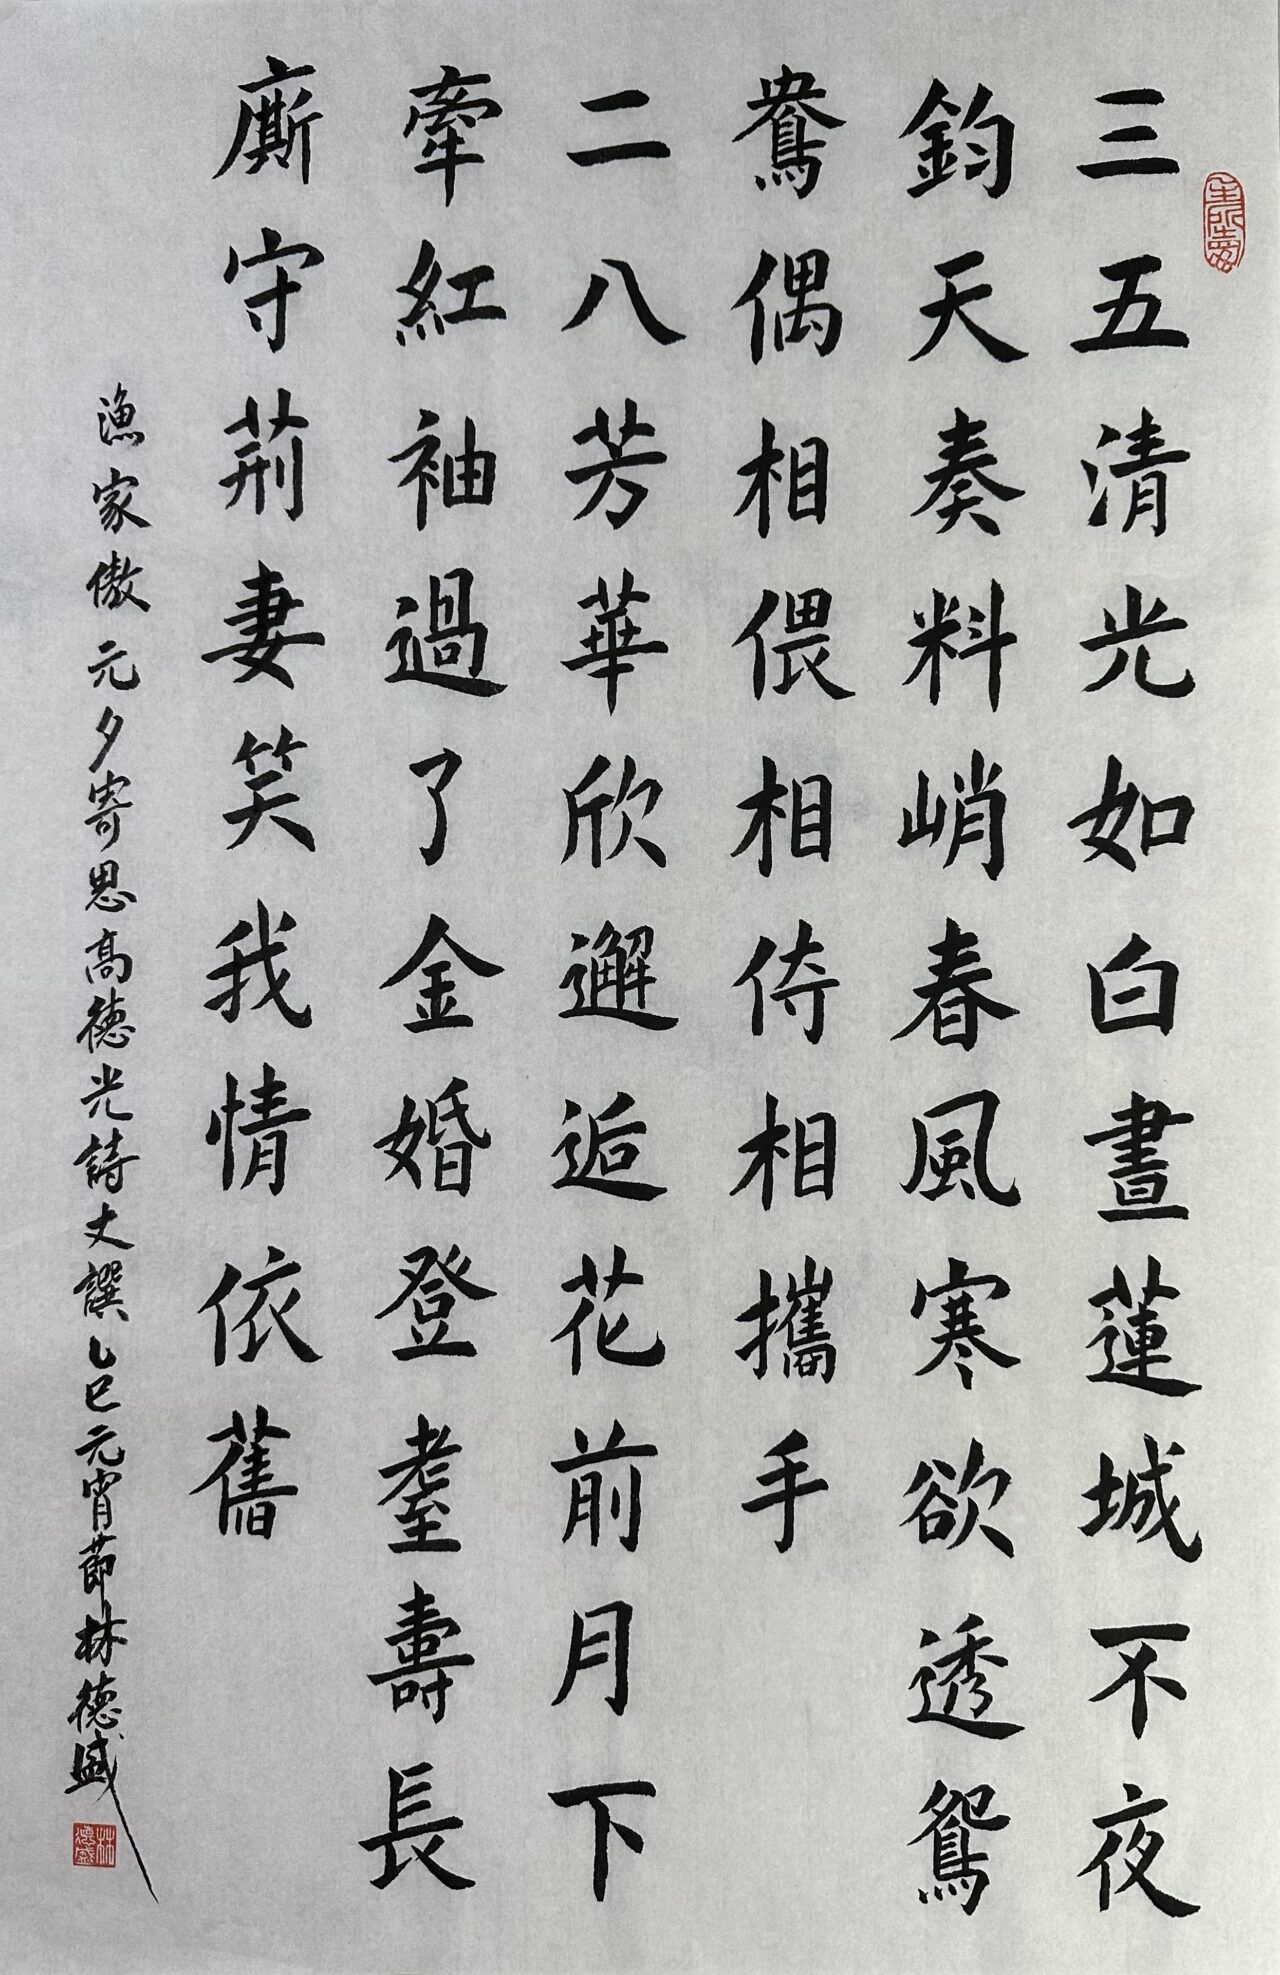 三五清光如白晝蓮城不夜
鈞天奏料峭春風寒欲透鴛
鴦偶相偎相倚相攜手
二八芳華欣邂逅花前月下
牽紅袖過了金婚登耋壽長
廝守荊妻笑我情依舊
漁家傲元夕寄思高德光詩丈譔乙巳元宵節林德盛
林德盛